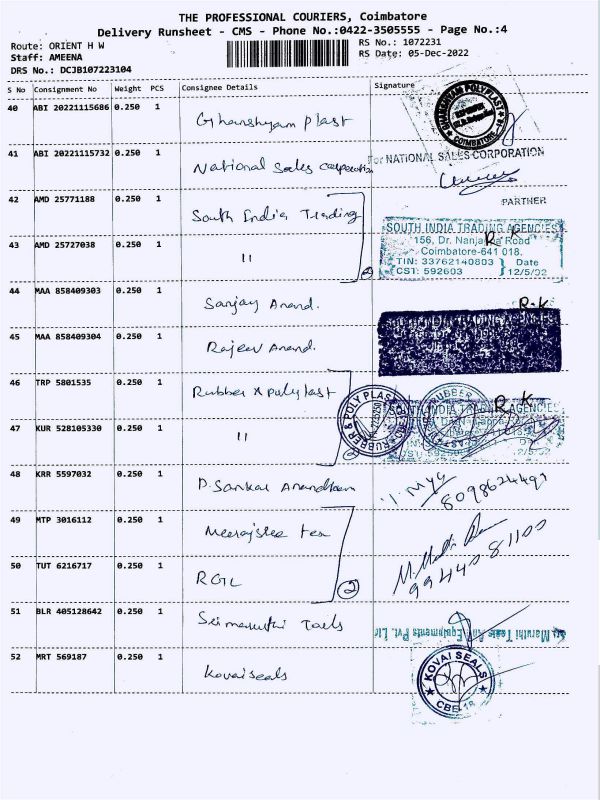 THE PROFESSIONAL COURIERS, Coimbatore
Delivery Runsheet - CMS - Phone No.:0422-3505555 - Page No.:4
Route: ORIENT H W
RS No.: 1072231
Staff: AMEENA
RS Date: 05-Dec-2022
DRS No.: DCJB107223104
S No Consignment No Weight PCS Consignee Details Signature
40 ABI 20221115686 0.250 1 Ghanshyam Plast
GHANSHYAM POLYPLAST COIMBATORE-18
41 ABI 20221115732 0.250 1 National Sales Corporation
for NATIONAL SALES CORPORATION
PARTNER
42 AMD 25771188 0.250 1 South India Trading
SOUTH INDIA TRADING AGENCIES
R.K
43 AMD 25727038 0.250 1 11
156, Dr. Nanjappa Road
Coimbatore-641 018.
TIN: 33762140803 Date
CST: 592603 12/5/02
2
44 MAA 858409303 0.250 1 Sanjay Anand.
R.K
45 MAA 858409304 0.250 1 Rajeev Anand.
SOUTH INDIA TRADING AGENCIES
46 TRP 5801535 0.250 1 Rubber & polyplast
RUBBER & POLY PLAST
SOUTH INDIA TRADING AGENCIES
R.K
47 KUR 528105330 0.250 1 11
2
48 KRR 5597032 0.250 1 P. Sankar Anandham
8098624491
49 MTP 3016112 0.250 1 Meerajstee tex
50 TUT 6216717 0.250 1 RGL
2
9944081100
51 BLR 405128642 0.250 1 Sri maruthi Tools
Sri Maruthi Tools And Equipments Pvt. Ltd
52 MRT 569187 0.250 1 Kovai seals
KOVAI SEALS CBE-18